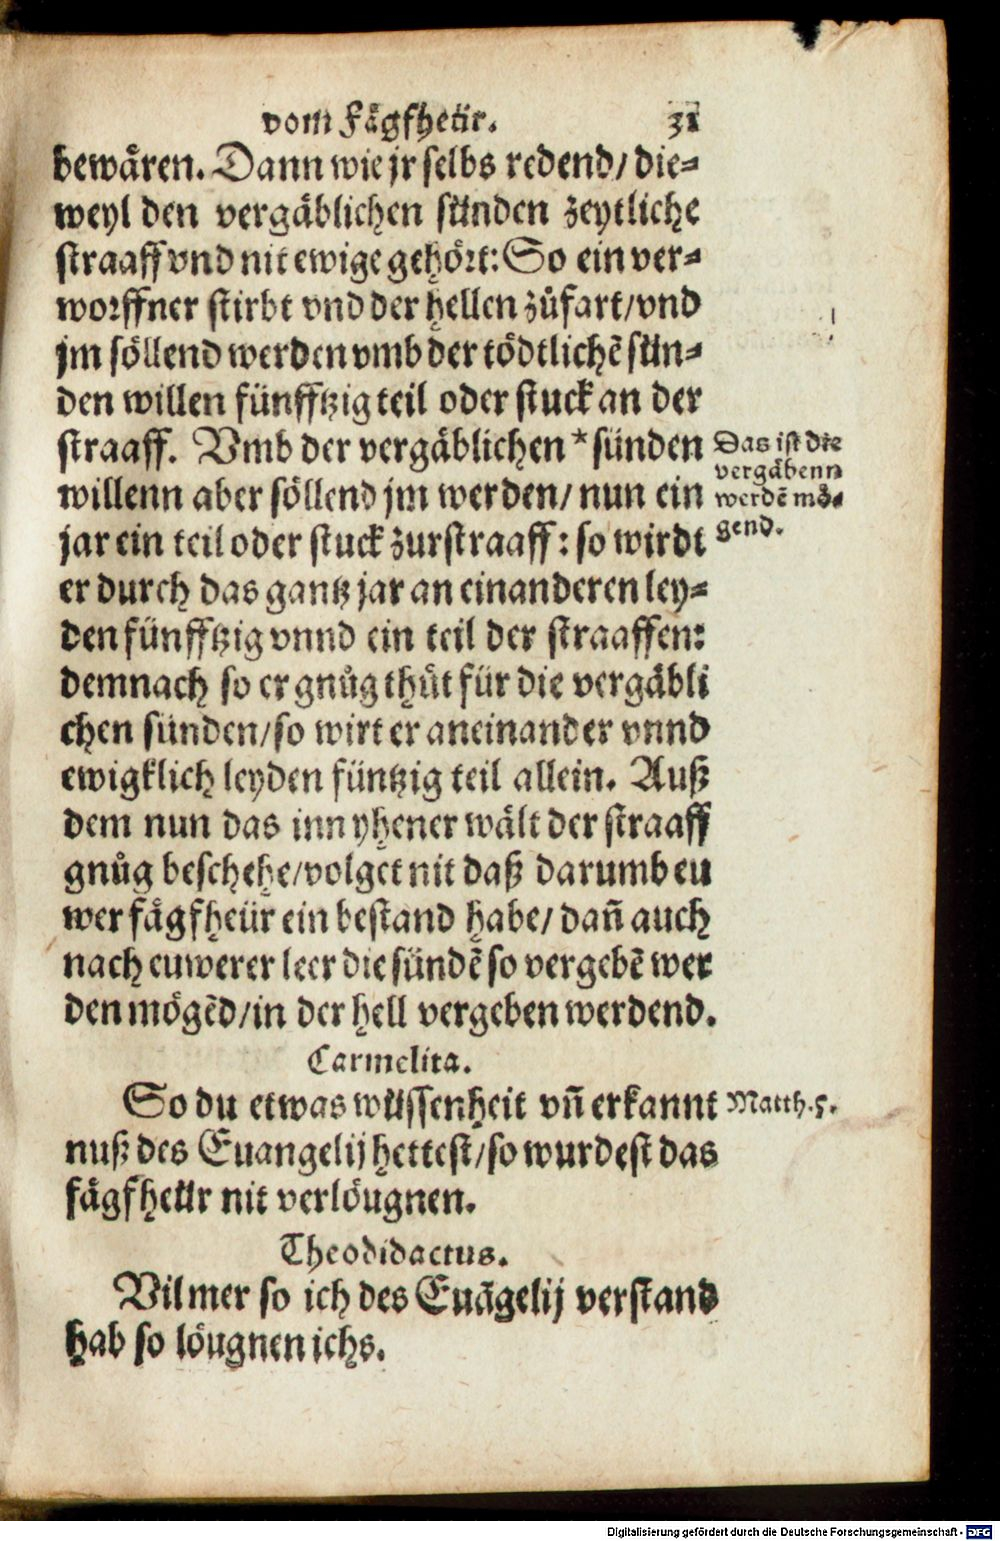 vom Fägfheür. 31
bewären. Dann wie jr selbs redend/ die-
weyl den vergäblichen sünden zeytliche
straaff vnd nit ewige gehört: So ein ver-
worffner stirbt vnd der hellen zůfart/ vnd
jm söllend werden vmb der tödtlichē sün-
den willen fünfftzig teil oder stuck an der
straaff. Vmb der vergäblichen * sünden
Das ist die
vergäbenn
werdē mö-
gend.
willenn aber söllend jm werden/ nun ein
jar ein teil oder stuck zur straaff: so wirdt
er durch das gantz jar an einanderen ley-
den fünfftzig vnnd ein teil der straaffen:
demnach so er gnůg thůt für die vergäbli
chen sünden/ so wirt er aneinander vnnd
ewigklich leyden füntzig teil allein. Auß
dem nun das inn yhener wält der straaff
gnůg beschehe/ volget nit daß darumb eu
wer fägfheür ein bestand habe/ dañ auch
nach euwerer leer die sündē so vergebē wer
den mögēd/ in der hell vergeben werdend.
Carmelita.
So du etwas wüssenheit vñ erkannt
Matth. 5.
nuß des Euangelij hettest/ so wurdest das
fägfheür nit verlöugnen.
Theodidactus.
Vil mer so ich des Euāgelij verstand
hab so löugnen ichs.
Digitalisierung gefördert durch die Deutsche Forschungsgemeinschaft - DFG